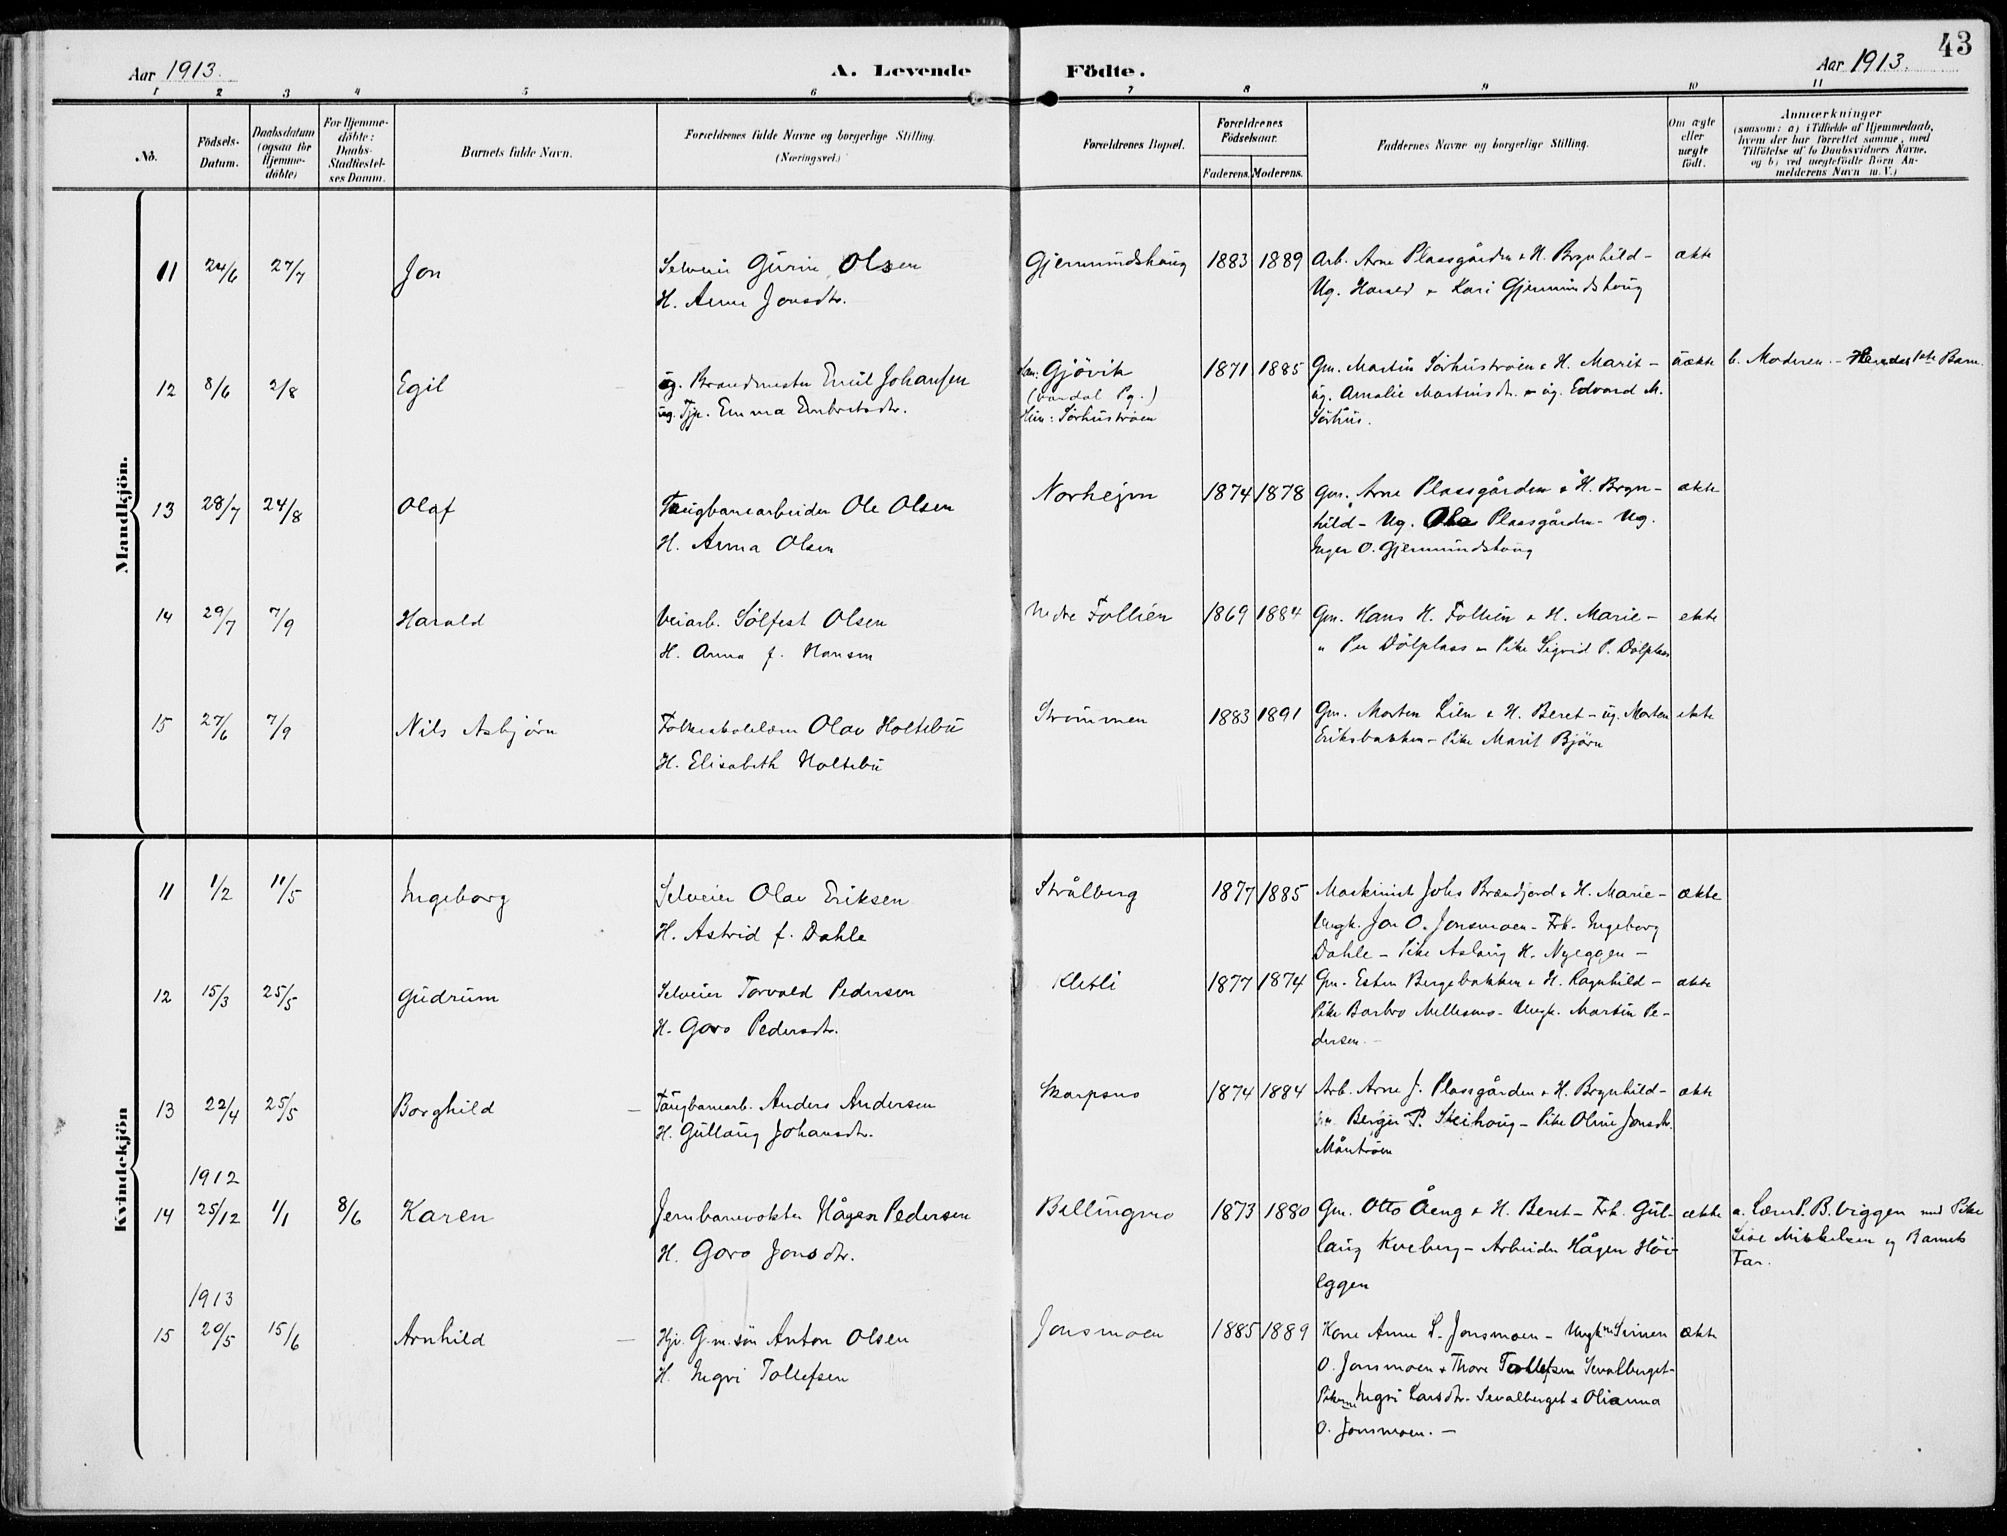 43
Aar 1913.
A. Levende Födte.
Aar 1913.
1 2 3 4 5 6 7 8 9 10 11
No.
Födsels-Datum.
Daabsdatum (ogsaa for Hjemmedöbte)
For Hjemmedöbte: Daabs-Stadfæstelses Datum.
Barnets fulde Navn.
Forældrenes fulde Navne og borgerlige Stilling. (Næringsvei.)
Forældrenes Bopæl.
Forældrenes Födselsaar.
Faderens. Moderens.
Faddernes Navne og borgerlige Stilling.
Om ægte eller uægte födt.
Anmærkninger
(saasom: a) i Tilfælde af Hjemmedaab,
hvem der har forrettet samme, med
Tilföielse af to Daabsvidners Navne,
og b) ved uægtefödte Börn An-
melderens Navn m. V.)
Mandkjön.
11 24/6 27/7 Jon
Selveier Gurin Olsen
H. Anne Jonsdtr.
Gjermundshaug 1883 1889
Arb. Arne Plassgården & H. Brynhild -
Ug. Harald & Kari Gjermundshaug
ækte
12 8/6 2/8 Egil
ug. Brandmester Emil Johansen
ug. Tjp. Emma Embretsdtr.
Han: Gjövik
(Vardal Pg.)
Hun: Sörhuströen
1871 1885
Gm. Martin Sörhuströen & H. Marit -
ug. Amalie Martinsdtr. & ug. Edvard M.
Sörhus.
uækte
b. Moderen. - Hendes 1ste Barn.
13 28/7 24/8 Olaf
Taugbanearbeider Ole Olsen
H. Anna Olsen
Norhejm 1874 1878
Gm. Arne Plassgården & H. Bryn-
hild - Ug. Ola Plassgården - Ug.
Inger O. Gjermundshaug
ækte
14 29/7 7/9 Harald
Veiarb. Sölfest Olsen
H. Anna f. Hansen
Nedre Follien 1869 1884
Gm. Hans H. Follien & H. Marie -
" Per Dölplass & Pike Sigrid P. Dölplass
ekte
15 27/6 7/9 Nils Asbjørn
Folkeskolelærer Olav Holtebu
H. Elisabeth Holtebu
Strömmen 1883 1891
Gm. Morten Lien & H. Beret - ug. Morten
Eriksbakken - Pike Marit Bjørn
ekte
Kvindekjön
11 1/2 11/5 Ingeborg
Selveier Olav Eriksen
H. Astrid f. Dahle
Strålberg 1877 1885
Maskinist Johs Brændjord & H. Marie -
Ungk. Jon O. Jonsmoen - Frk. Ingeborg
Dahle - Pike Aslaug H. Nyeggen -
ækte
12 15/3 25/5 Gudrun
Selveier Torvald Pedersen
H. Goro Pedersdtr.
Kletli 1877 1874
Gm. Esten Bergebakken & H. Ragnhild -
Pike Barbro Mellesmo - Ungk. Martin Pe-
dersen. -
ækte
13 22/4 25/5 Borghild
Taugbanearb. Anders Andersen
H. Gullaug Johansdtr.
Skarpsno 1874 1884
Arb. Arne J. Plassgården & H. Brynhild -
Berger P. Steihaug - Pike Oline Jonsdtr.
Måntröen
ækte
1912
14 25/12 1/1 8/6 Karen
Jernbanevokter Hågen Pedersen
H. Goro Jonsdtr.
Bellingmo 1873 1880
Gm. Otto Åeng & H. Beret - Frk. Gul-
laug Kveberg - Arbeider Hågen Höi-
eggen
ækte
a. Lærer P. B. Viggen med Pike
Lise Mikkelsen og Barnets
Far.
1913
15 20/5 15/6 Arnhild
Hjv. G.m.sön Anton Olsen
H. Ingri Tollefsen
Jonsmoen 1885 1889
Kone Anne L. Jonsmoen - Ungkm Simen
O. Jonsmoen & Thore Tollefsen Sevalberget -
Pikerne Ingri Larsdtr. Sevalberget & Olianna
O. Jonsmoen. -
ækte